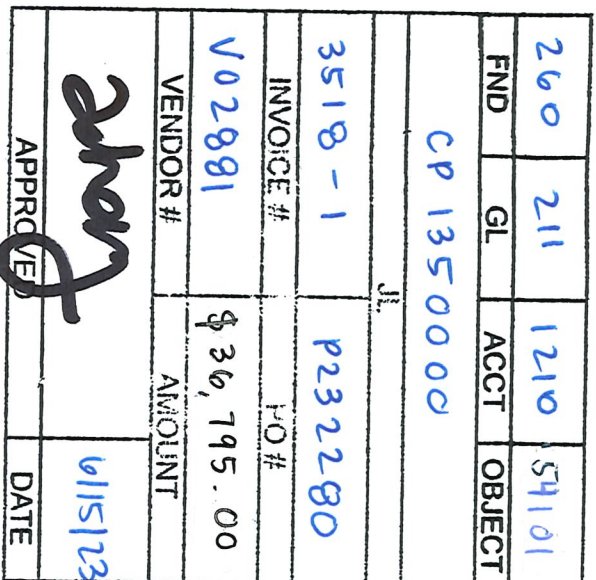 260 211 1210 54101
FND GL ACCT OBJECT
CP 1350000
JL
3518-1 P232280
INVOICE # PO #
V02881 $36,795.00
VENDOR # AMOUNT
6/15/23
APPROVED DATE